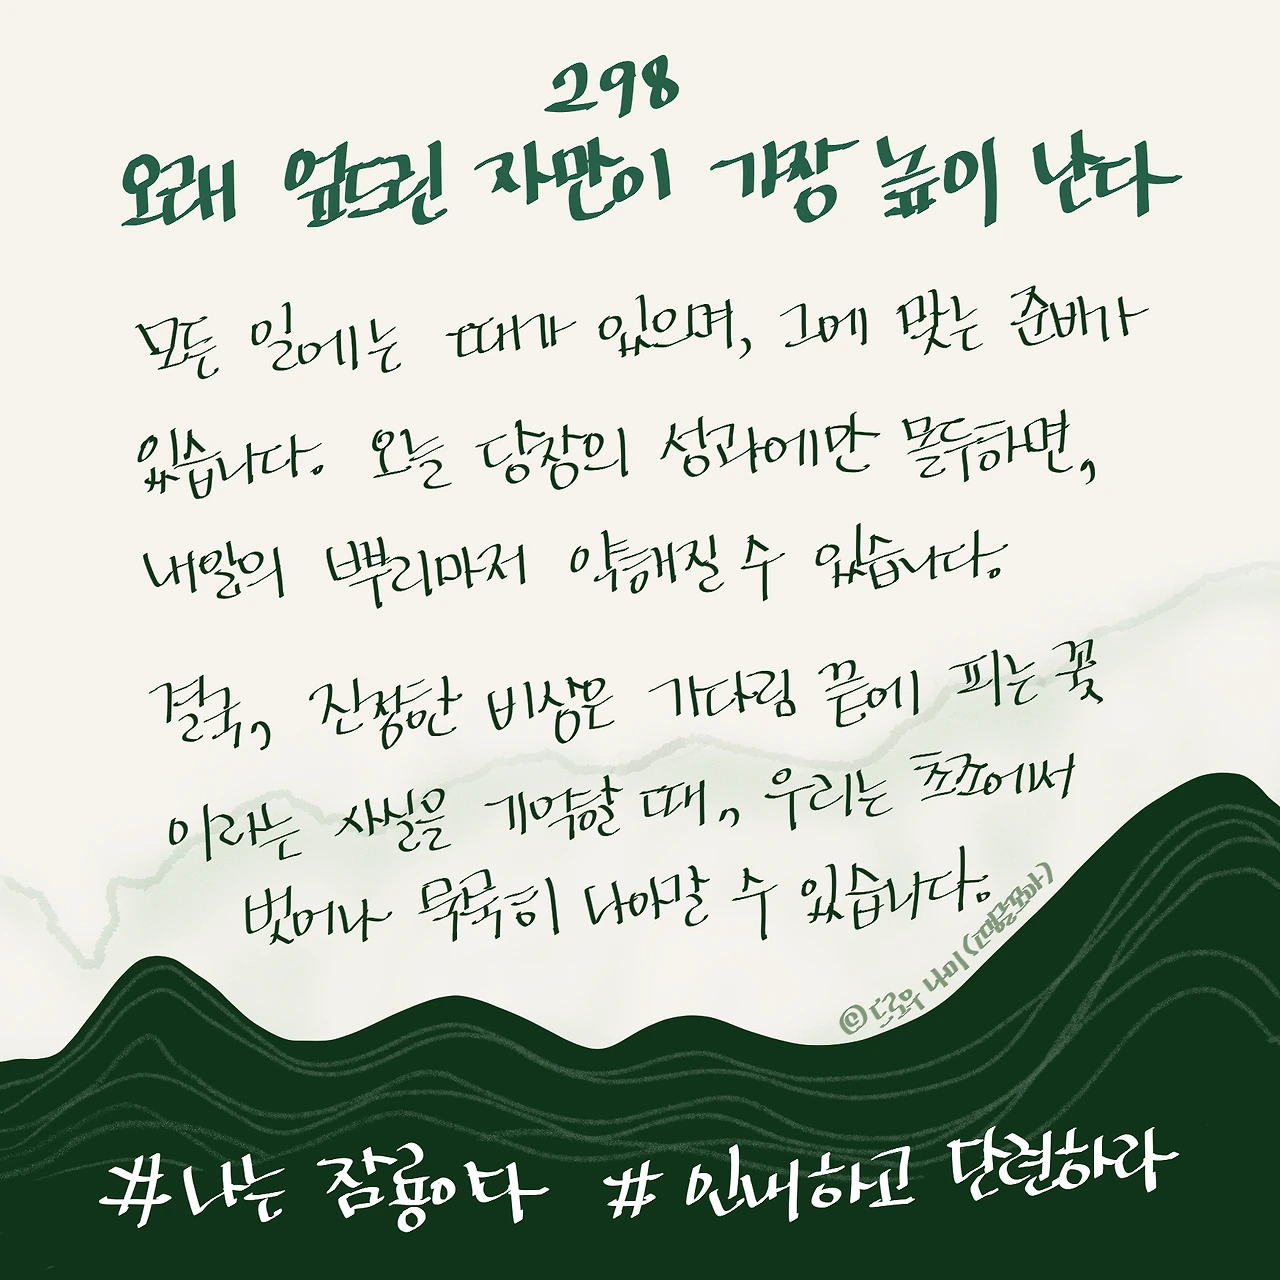 298
오래 엎드린 자만이 가장 높이 난다
모든 일에는 때가 있으며, 그에 맞는 준비가
있습니다. 오늘 당장의 성과에만 몰두하면,
내일의 뿌리마저 약해질 수 있습니다.
결국, 진정한 비상은 기다림 끝에 피는 꽃
이라는 사실을 기억할 때, 우리는 초조에서
벗어나 묵묵히 나아갈 수 있습니다.
#나는 잠룡이다 #인내하고 단련하라